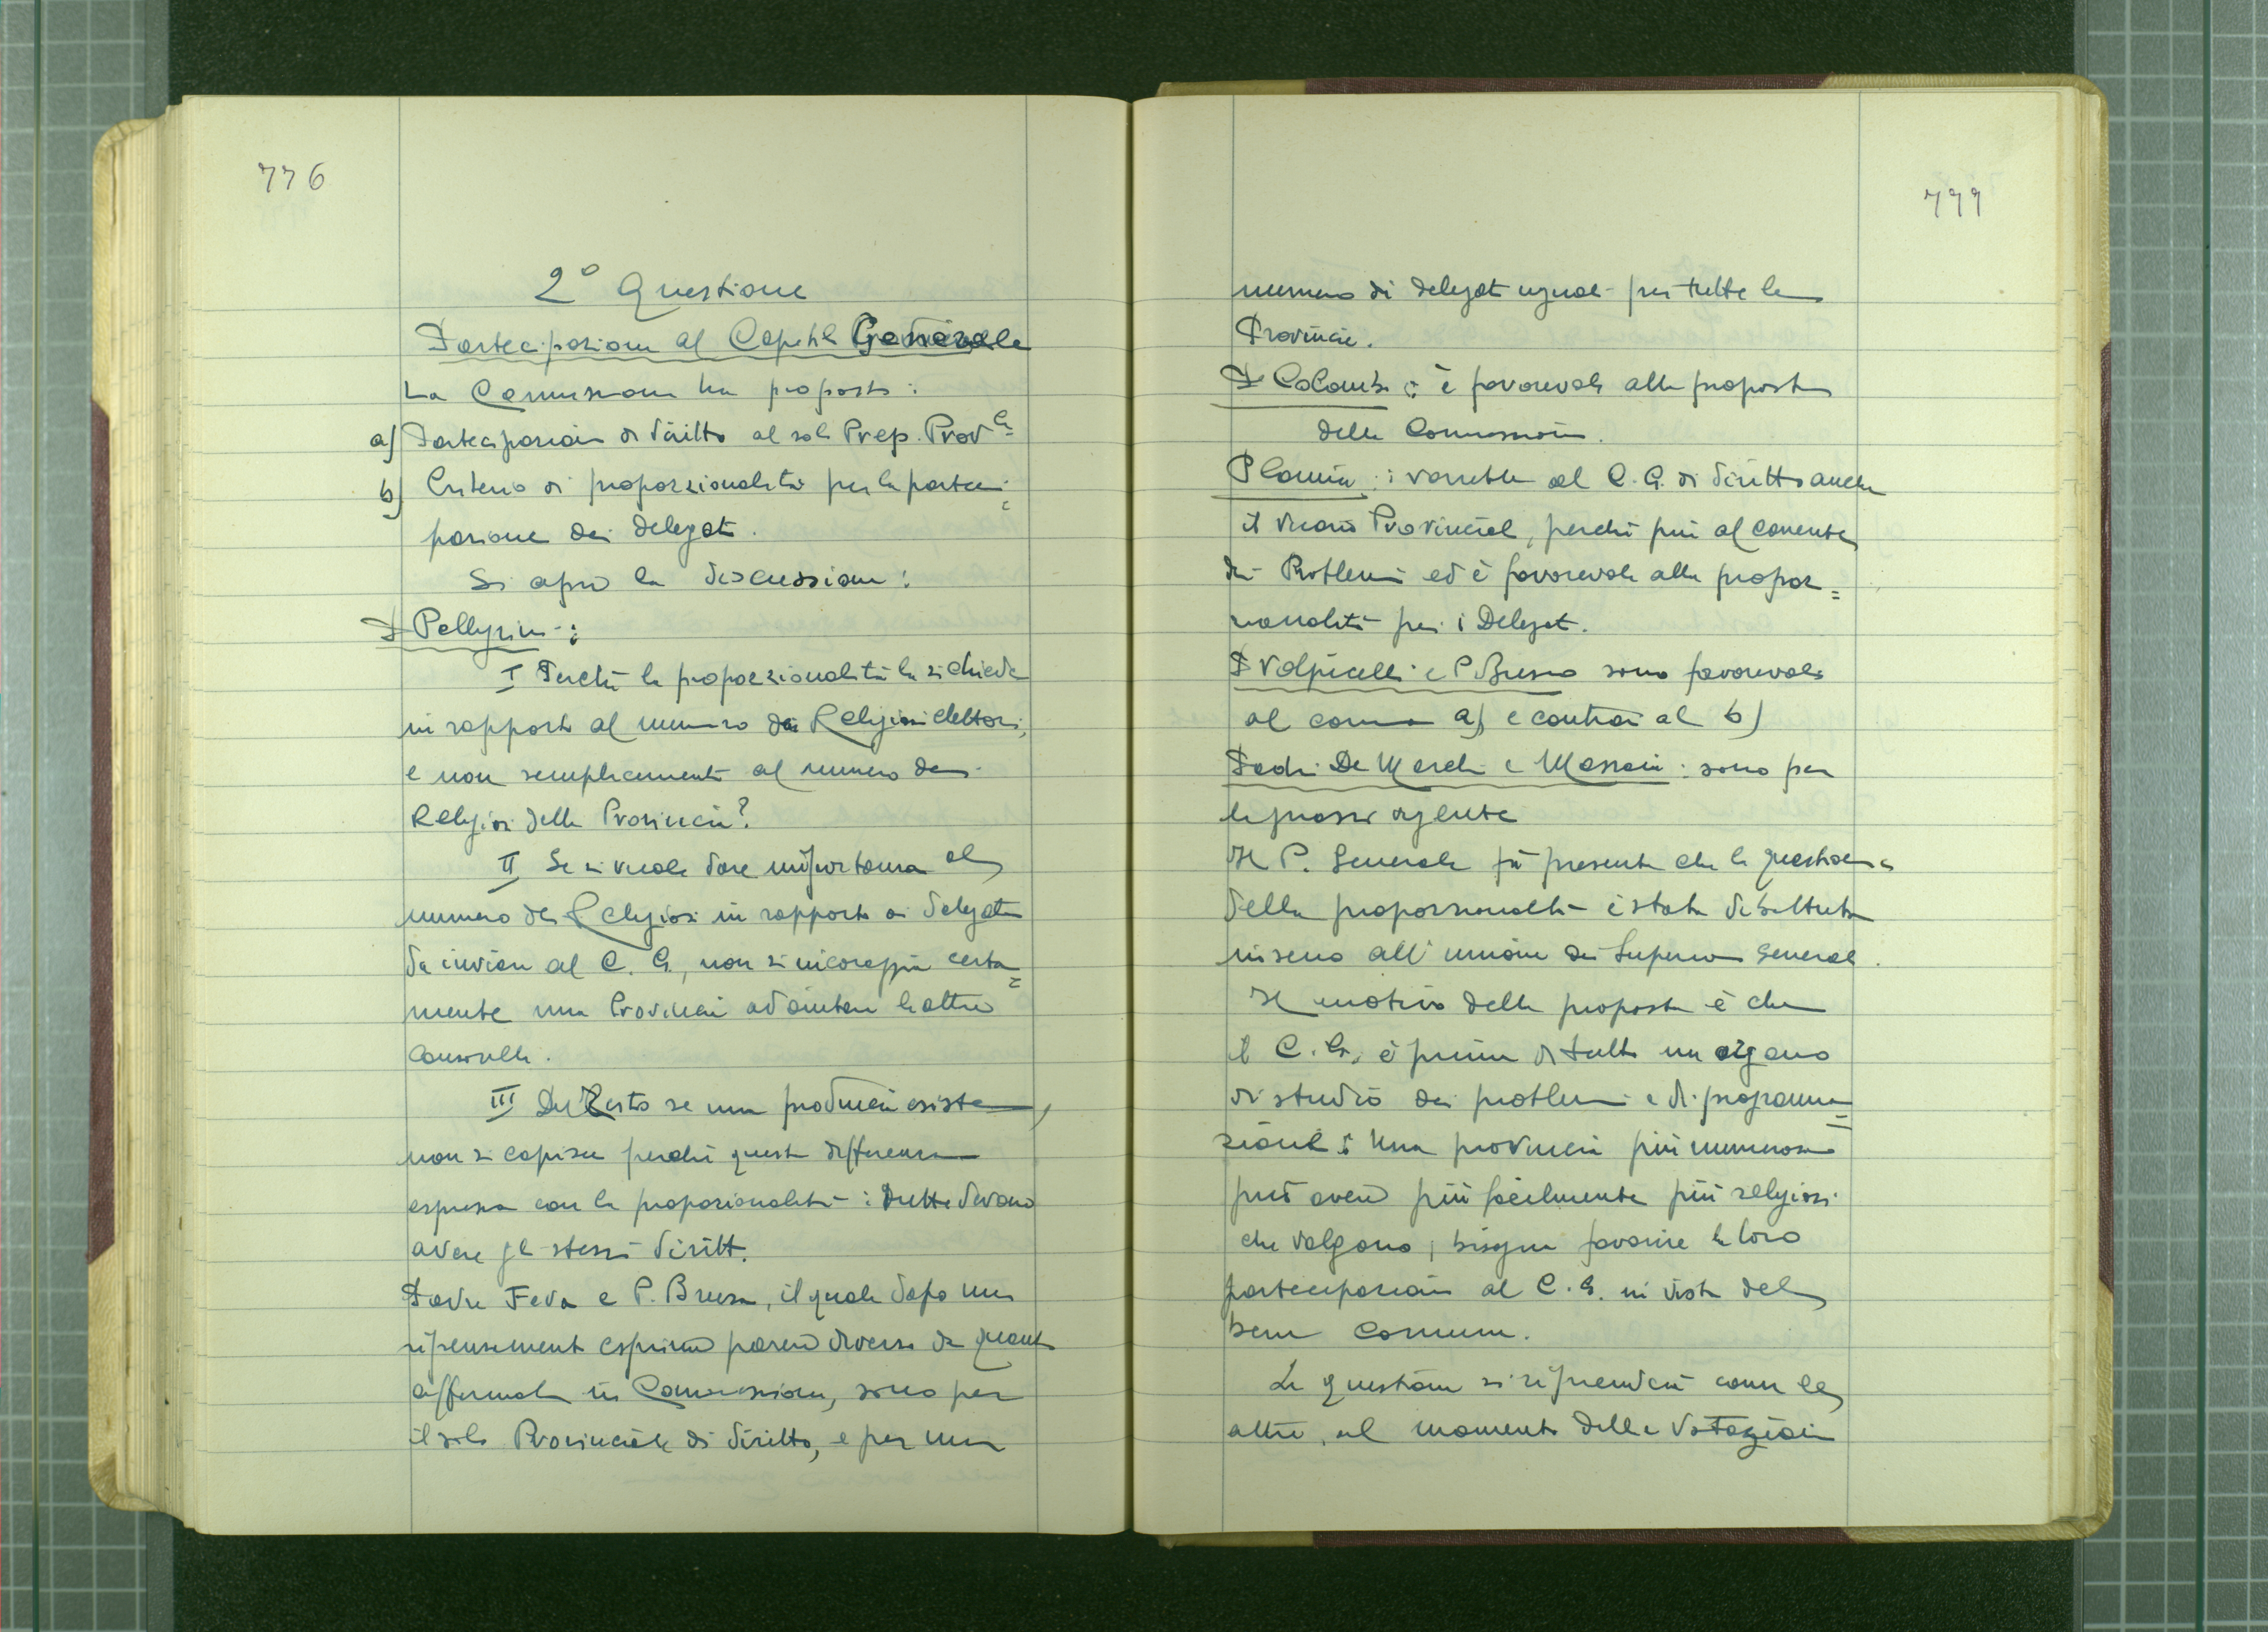 776
2° Questione
Partecipazione al Capitolo Generale
La Commissione ha proposto:
a) Partecipazione di diritto al solo Prep. Prov.le
b) Criterio di proporzionalità per la parteci=
pazione dei delegati.
Si apre la discussione:
P Pellegrini:
I Perché la proporzionalità la si chiede
in rapporto al numero dei Religiosi elettori,
e non semplicemente al numero dei
Religiosi della Provincia?
II Se si vuole dare importanza al
numero dei Religiosi in rapporto ai delegati
da inviare al C. G., non si incoraggia certa=
mente una Provincia ad aiutare le altre
consorelle.
III Del Resto se una provincia esiste,
non si capisce perché questa differenza
espressa con la proporzionalità: tutte devono
avere gli stessi diritti.
Padre Fava e P. Brusa, il quale dopo un
ripensamento esprime parere diverso da quanto
affermato in Commissione, sono per
il solo Provinciale di diritto, e per un
777
numero di delegati uguale per tutte le
Provincie.
P Colombo: è favorevole alla proposta
della Commissione.
P : vorrebbe al C. G. di diritto anche
il Vicario Provinciale, perché più al corrente
dei Problemi ed è favorevole alla propor=
zionalità per i Delegati.
P Volpicelli e P Brusa sono favorevoli
al comma a) e contrari al b)
Padri De Marchi e Massaia: sono per
la prassi vigente
Il P. Generale fa presente che la questione
della proporzionalità è stata dibattuta
in seno all'unione dei Superiori Generali.
Il motivo della proposta è che
il C. G. è prima di tutto un organo
di studio dei problemi e di programma=
zione: Una provincia più numerosa
può avere più facilmente più religiosi
che valgono; bisogna favorire la loro
partecipazione al C. G. in vista del
bene comune.
La questione si riprenderà come le
altre, al momento delle Votazioni